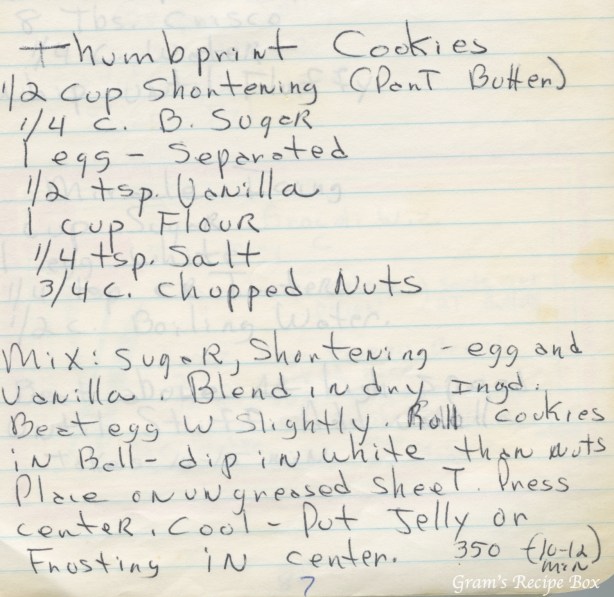 Thumbprint Cookies
1/2 cup Shortening (Part Butter)
1/4 c. B. Sugar
1 egg - Separated
1/2 tsp. Vanilla
1 cup Flour
1/4 tsp. Salt
3/4 c. Chopped Nuts
Mix: Sugar, Shortening - egg and
Vanilla. Blend in dry Ingd.
Beat egg w slightly. Roll cookies
in Ball - dip in white than nuts
Place on ungreased sheet. Press
center. Cool - Put Jelly or
Frosting in center. 350 (10-12)
min
7
Gram's Recipe Box